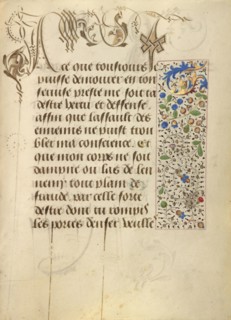 A ce que tousiours ie
puisse demourer en ton
seruise preste moy souz ta
destre vertu et deffense.
affin que lassault des
ennemis ne puist trou
bler ma conscience. Et
que mon corps ne soit
dampne ou las de len
nemy tout plain de
fraude. par celle forte
destre dont tu rompis
les portes denfer. vueille